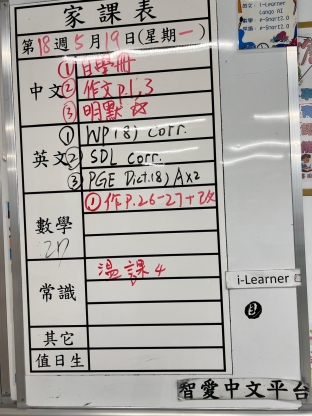 家課表
第18週5月19日(星期一)
中文
① 自學冊
② 作文p.1,3
③ 明默
英文
① WP(8) corr.
② SDL corr.
③ PGE Dict.(8) A×2
數學
① 作P.26-27+改
2D
常識
溫課4
其它
值日生
i-Learner
智愛中文平台
i-Learner
Lango AI
e-Smart2.0
e-Smart2.0